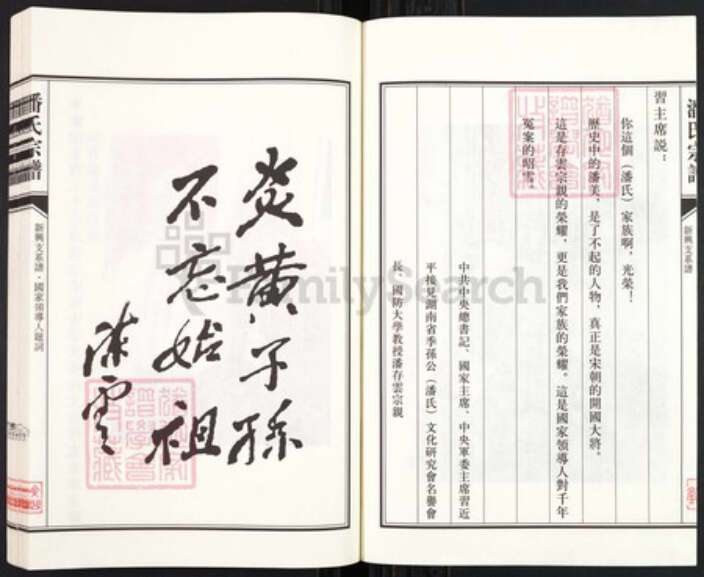 潘氏宗譜
習主席説：
你這個（潘氏）家族啊，光榮！
歷史中的潘美，是了不起的人物，真正是宋朝的開國大將。
這是存雲宗親的榮耀，更是我們家族的榮耀。這是國家領導人對千年
冤案的昭雪。
中共中央總書記、國家主席、中央軍委主席習近
平接見湖南省季孫公（潘氏）文化研究會名譽會
長、國防大學教授潘存雲宗親
新興支系譜
炎黃子孫
不忘始祖
陳雲
潘氏宗譜
新興支系譜·國家領導人題詞
FamilySearch